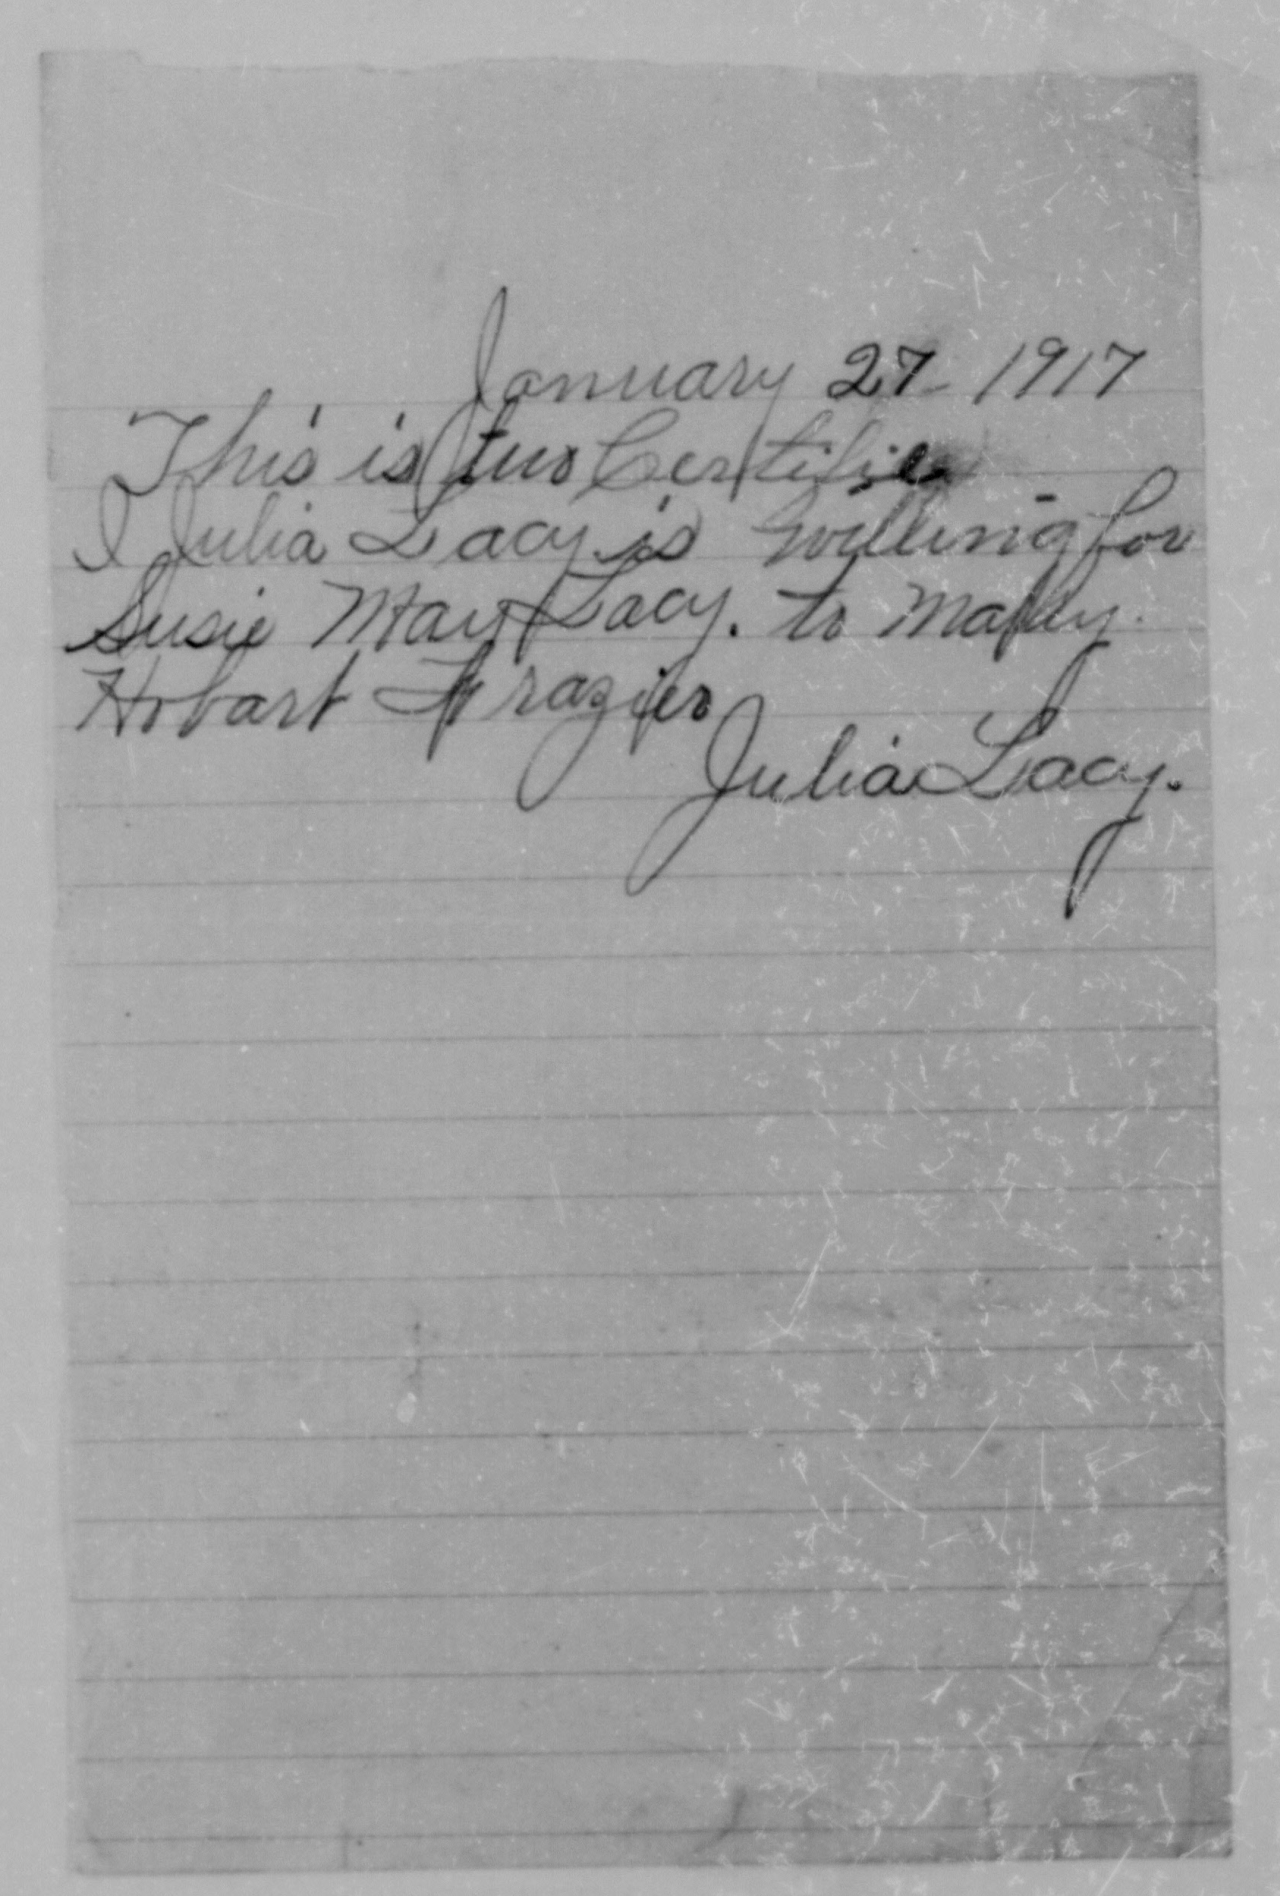 January 27 - 1917
This is two Certifie
I Julia Lacy is willing for
Susie May Lacy. to Mary.
Hobart Frazier
Julia Lacy.